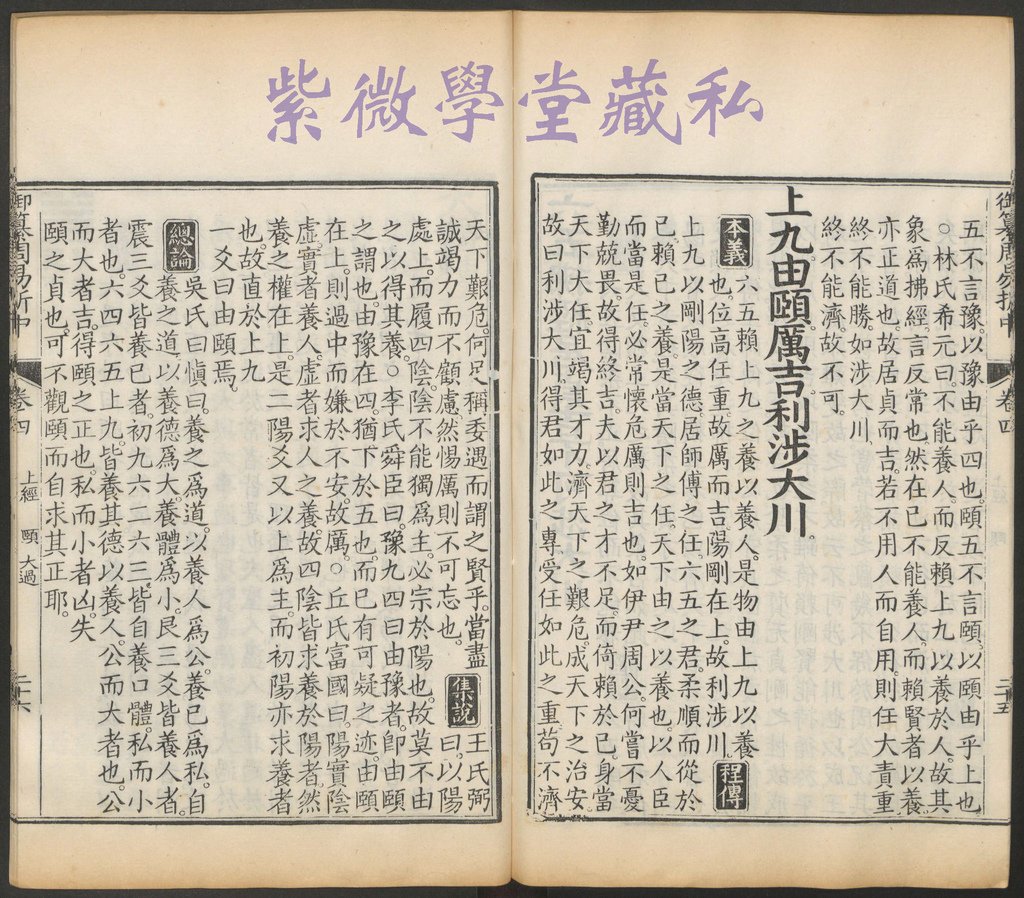 紫微學堂藏私
五不言豫。以豫由乎四也。頤五不言頤。以頤由乎上也
○林氏希元曰。不能養人。而反賴上九以養於人。故其
象爲拂經。言反常也。然在已不能養人。而賴賢者以養。
亦正道也。故居貞而吉。若不用人而自用。則任大責重
終不能勝。如涉大川。
終不能濟。故不可。
上九由頤厲吉利涉大川。
本義 六五賴上九之養以養人。是物由上九以養
也。位高任重。故厲而吉。陽剛在上。故利涉川。程傳
上九以剛陽之德。居師傅之任。六五之君。柔順而從於
已。賴已之養。是當天下之任。天下由之以養也。以人臣
而當是任。必常懷危厲則吉也。如伊尹周公。何嘗不憂
勤兢畏。故得終吉。夫以君之才不足。而倚賴於已。身當
天下大任。宜竭其才力。濟天下之艱危。成天下之治安。
故曰利涉大川。得君如此之專。受任如此之重。苟不濟
卷四
二十五
天下艱危。何足稱委遇而謂之賢乎。當盡
誠竭力而不顧慮。然惕厲則不可忘也。集說 王氏弼曰。以陽
處上。而履四陰。陰不能獨爲主。必宗於陽也。故莫不由
之以得其養。○李氏舜臣曰。豫九四曰由豫者。卽由頤
之謂也。由豫在四。猶下於五也。而已有可疑之迹。由頤
在上。則過中而嫌於不安。故厲。○丘氏富國曰。陽實陰
虛。實者養人。虛者求人之養。故四陰皆求養於陽者。然
養之權在上。是二陽爻又以上爲主。而初陽亦求養者
也。故直於上九
一爻曰由頤焉。
總論 吳氏曰愼曰。養之爲道。以養人爲公。養已爲私。自
養之道。以養德爲大。養體爲小。艮三爻皆養人者。
震三爻皆養已者。初九六二六三。皆自養口體。私而小
者也。六四六五上九。皆養其德以養人。公而大者也。公
而大者吉。得頤之正也。私而小者凶。失
頤之貞也。可不觀頤而自求其正耶。
御纂周易折中
卷四
上經 頤 大過
二十六